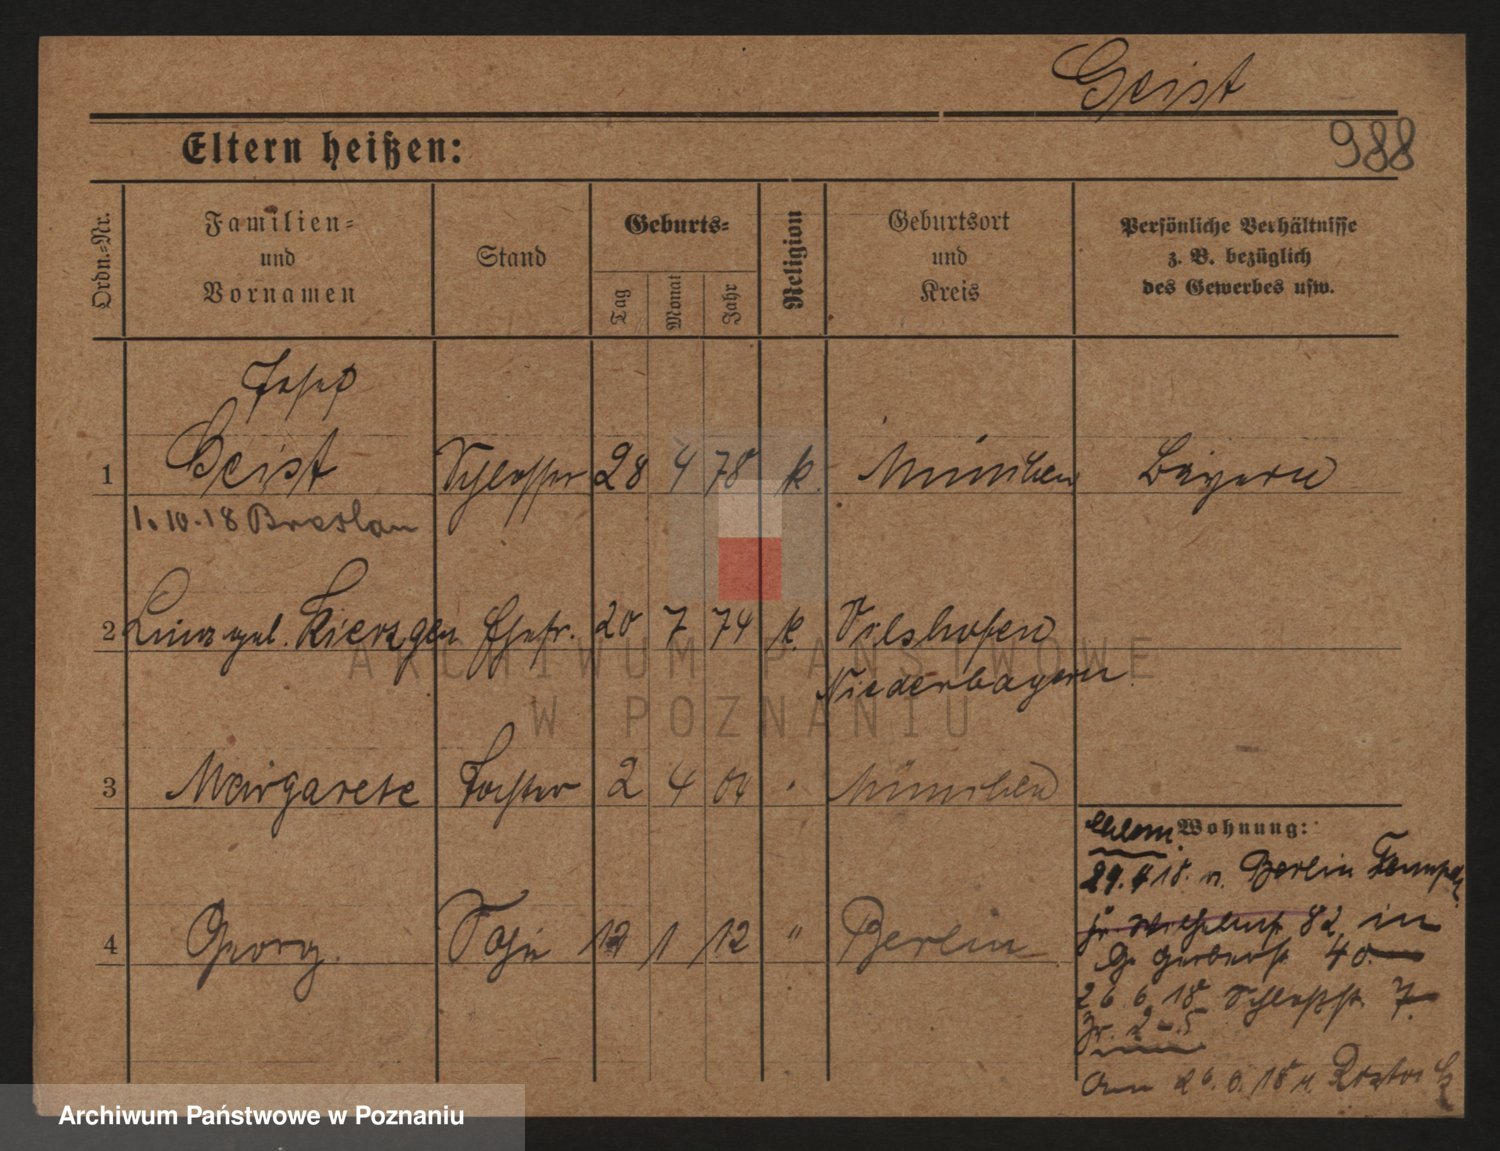 Geist
988
Eltern heißen:
Ordn.-Nr.
Familien-
und
Vornamen
Stand
Geburts-
Tag
Monat
Jahr
Religion
Geburtsort
und
Kreis
Persönliche Verhältnisse
z. B. bezüglich
des Gewerbes usw.
Josef
1 Geist Schlosser 28 4 78 k. München Bayern
1.10.18 Breslau
2 geb. Kierzgen Ehefr. 20 7 74 k. Vilshofen
Niederbayern
3 Margarete Tochter 2 4 04 München
4 Georg. Sohn 1 12 " Berlin
Wohnung:
18. v. Berlin
82 in
Gr. Gerberst. 40
26 6 18 Schloßst. 7
2-5
18 n. Rostock
ARCHIWUM PAŃSTWOWE
W POZNANIU
Archiwum Państwowe w Poznaniu